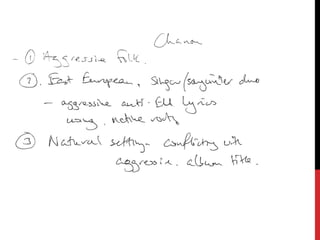 - ① Aggressive folk.
②. East European, singer/songwriter duo
- aggressive anti-EU lyrics
using native roots
③ Natural setting conflicting with
aggressive album title.